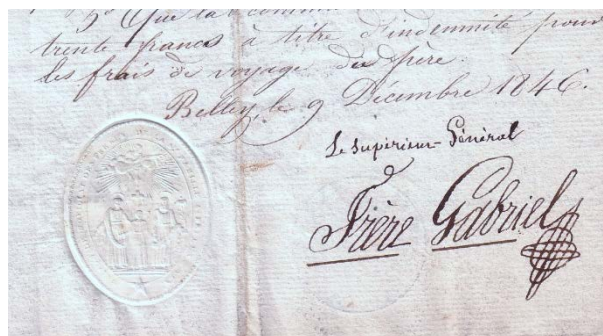 5º Que la commu
trente francs à titre d'indemnité pour
les frais de voyage du frère.
Belley, le 9 Décembre 1846.
Le Supérieur-Général
Frère Gabriel